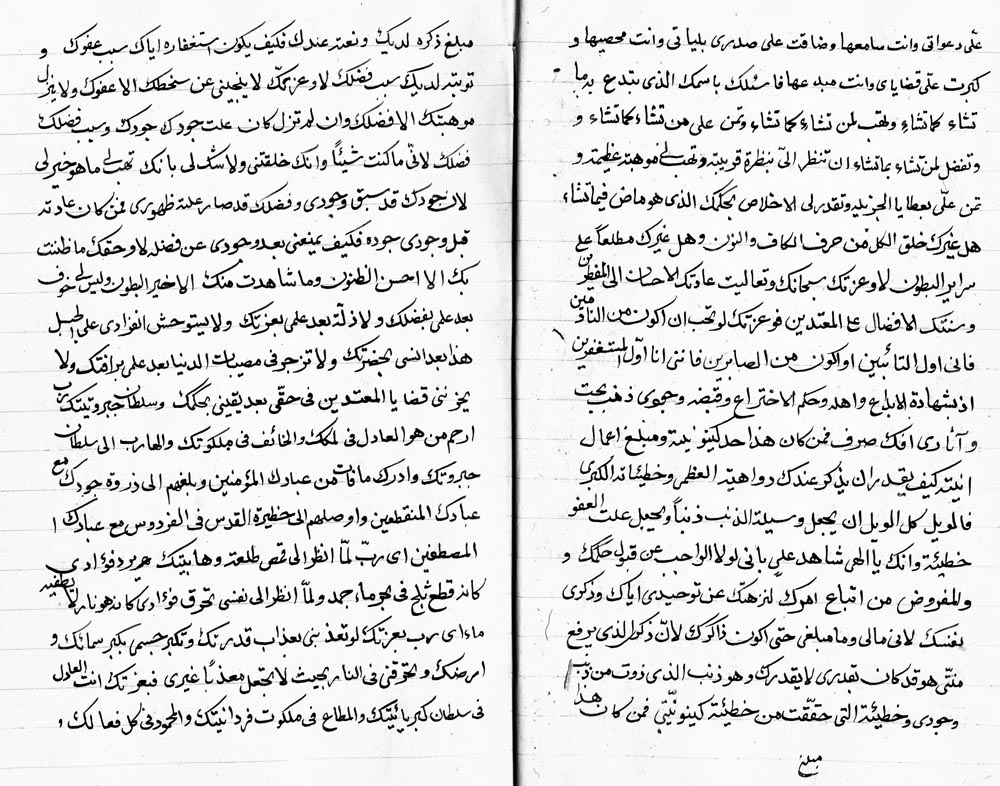 علّى دعواتى وانت سامعها وضاقت على صدرى بلياتى وانت محصيها و
كبرت علّى قضاياى وانت مبدعها فاسئلك باسمك الذى تبتدع به ما
تشاء كما تشاء وتهب لمن تشاء كما تشاء وتمن على من تشاء كما تشاء و
وتفضل لمن تشاء بما تشاء ان تنظر الىّ بنظرة قريبة وتهب لى موهبة عظيمة و
تمن علّى بعطايا الجزيلة وتقدر لى الاخلاص بحكمك الذى هو ماض فيما تشاء
هل غيرك خلق الكل من حرف الكاف والنون وهل غيرك مطلعا على
سراير البطون لا وعزتك سبحانك وتعاليت عادتك الاحسان الى المفطرين
وسنتك الافضال على المعتدين فوعزتك لو تحب ان اكون من النادمين
فانى اول التائبين او اكون من الصابرين فاننى انا اول المستغفرين
اذ بشهادة الابداع واهله وحكم الاختراع وقبضه وجودى ذنب بحت
و آثارى افك صرف فمن كان هذا حد كينونيته ومبلغ اعمال
انيته كيف يقدر ان يذكر عندك دواهيه العظمى وخطيئاته الكبرى
فالويل كل الويل ان يجعل وسيلة الذنب ذنبا ويجعل علت العفو
خطيئة وانك يا الهى شاهد علىّ بانى لولا الواجب عن قبول حكمك و
والمفروض من اتباع امرك لنزهتك عن توحيدى اياك وذكرى
نفسك لانى مالى وما مبلغى حتى اكون ذاكرك لان ذكرك الذى يرفع
منّى هو قد كان بقدرى لا بقدرك وهو ذنب الذى ذوت من ذنب
وجودى وخطيئة التى حققت من خطيئة كينونيّتى فمن كان هذا
مبلغ
مبلغ ذكره لديك ونعته عندك فكيف يكون استغفاره اياك سبب عفوك و
توبته لديك سبب فضلك لا وعزتك لا ينجينى عن سخطك الا عفوك ولا ينزل
موهبتك الا فضلك وان لم تزل كان علت جودك جودك وسبب فضلك
فضلك لانّى ما كنت شيئا وانك خلقتنى ولا شك لى بانك تهب لى ما هو خير لى
لان جودك قد سبق وجودى وفضلك قد صار علة ظهورى فمن كان عادته
قبل وجودى جوده فكيف يمنعنى بعد وجودى عن فضله لا وحقك ما ظننت
بك الا احسن الظنون وما شاهدت منك الا خير البطون وليس لى خوف
بعد علمى بفضلك ولا ذلّة بعد علمى بعزتك ولا يستوحش انفرادى على الجبل
هذا بعد انسى بحضرتك ولا تزجرنى مصيبات الدنيا بعد علمى برافتك ولا
يحزننى قضايا المعتدين فى حقّى بعد يقينى بحكمك وسلطان جبروتيتك رب
ارحم من هو العادل فى ملكك والخائف فى ملكوتك والهارب الى سلطان
جبروتك وادرك ما فات من عبادك المؤمنين وبلغهم الى ذروة جودك مع
عبادك المنقطعين واوصلهم الى حظيرة القدس فى الفردوس مع عبادك ا
المصطفين اى ربّ لمّا انظر الى قمص طلعته وهابيتك يبرد فؤادى
كانه قطع ثلج فى بحر ماء جمد ولمّا انظر الى نفسى تحرق فؤادى كانه هو نار لا يطفيه
ماء اى رب بعزتك لو تعذبنى بعذاب قدرتك وتكبر جسمى بكبر سمائك و
ارضك وتحرقنى فى النار بحيث لا تجعل معذبا غيرى فبعزتك انت العادل
فى سلطان كبريائيتك والمطاع فى ملكوت فردانيتك والمحمود فى كل فعالك